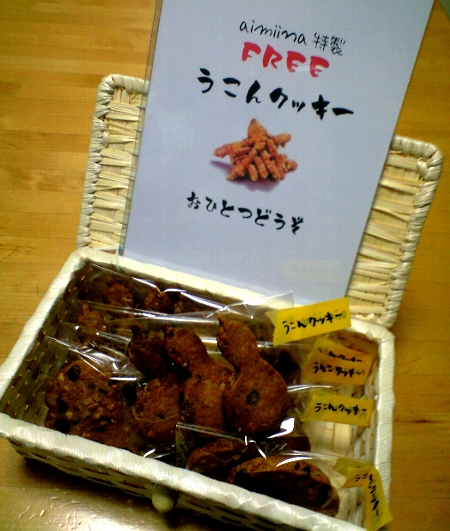 aimiina 特製
FREE
うこんクッキー
おひとつどうぞ
うこんクッキー
うこんクッキー
うこんクッキー
うこんクッキー